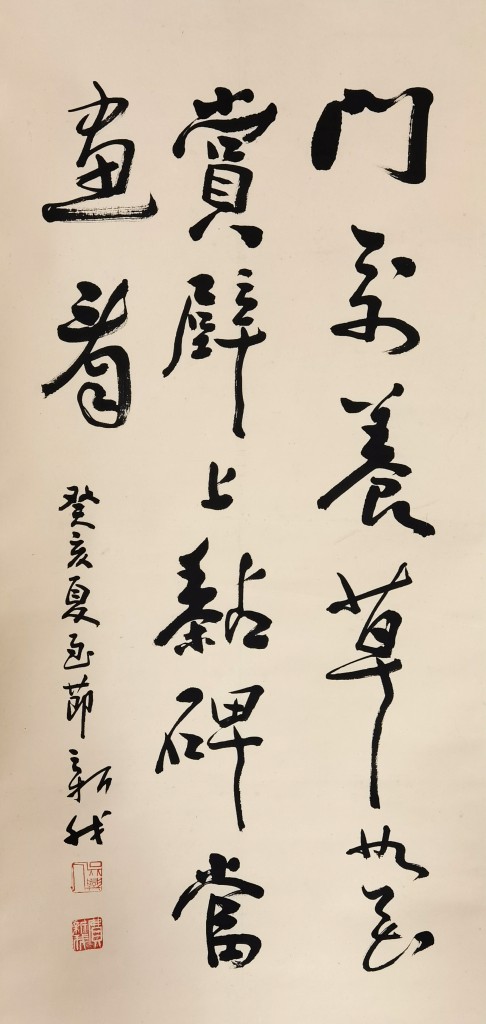 門前養草如花
賞壁上黏碑當
畫看
癸亥夏至節 新我